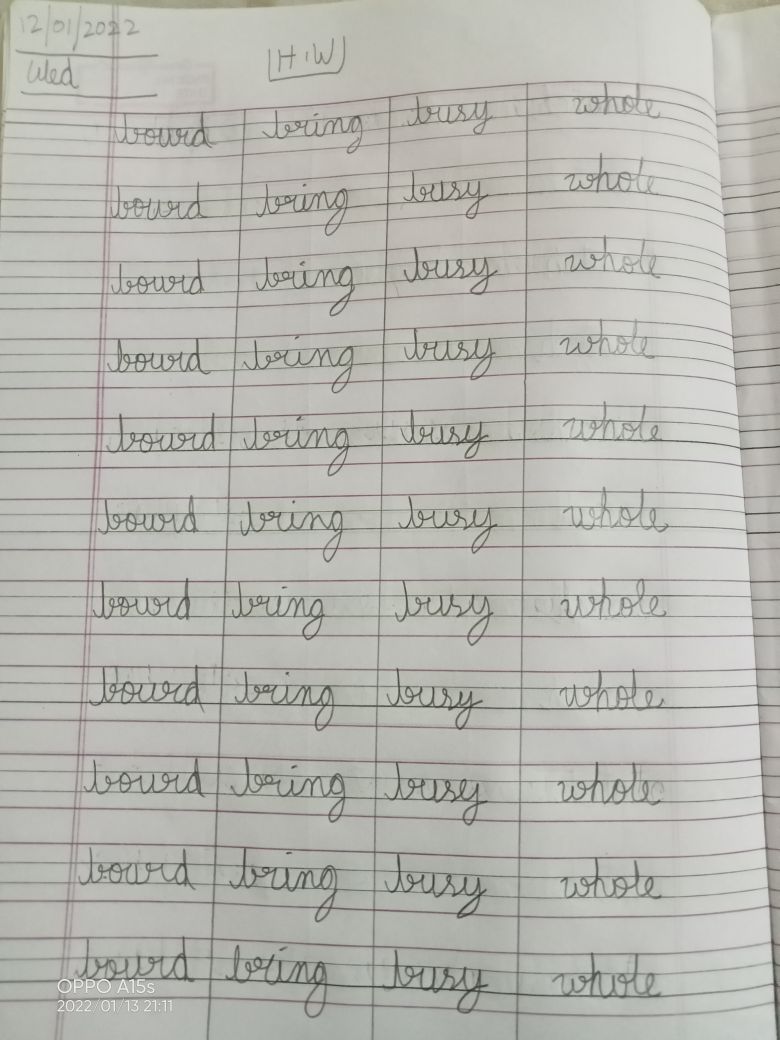 12/01/2022
Wed
H.W
bourd bring busy whole
bourd bring busy whole
bourd bring busy whole
bourd bring busy whole
bourd bring busy whole
bourd bring busy whole
bourd bring busy whole
bourd bring busy whole
bourd bring busy whole
bourd bring busy whole
bourd bring busy whole
OPPO A15s
2022/01/13 21:11